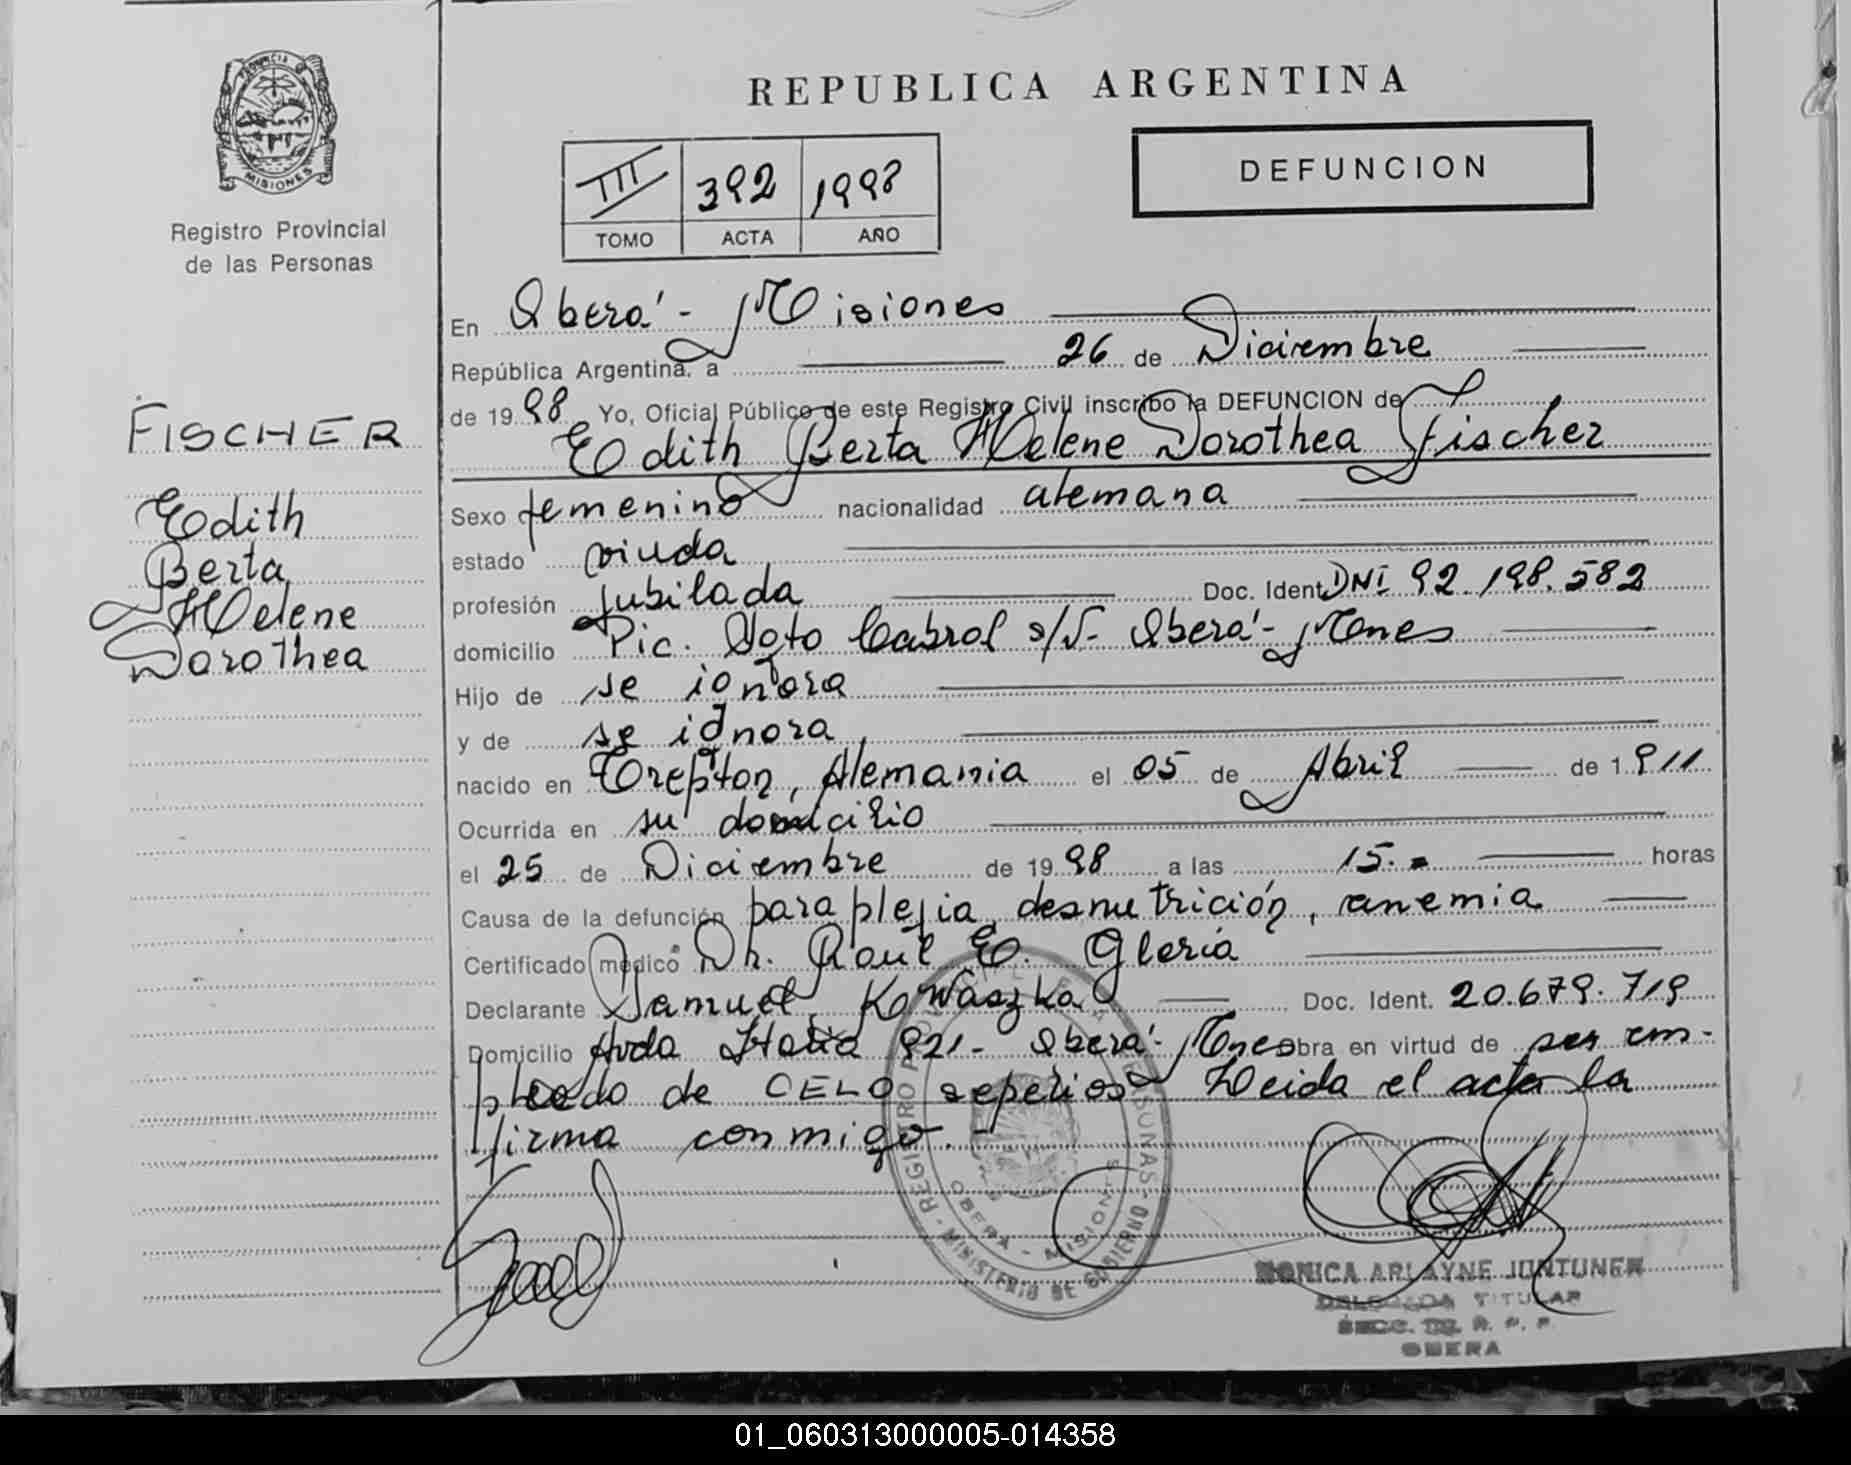 PROVINCIA DE
MISIONES
Registro Provincial
de las Personas
FISCHER
Edith
Berta
Helene
Dorothea
REPUBLICA ARGENTINA
III 392 1998
TOMO ACTA AÑO
DEFUNCION
En Oberá - Misiones
República Argentina, a 26 de Diciembre
de 19 98 Yo, Oficial Público de este Registro Civil inscribo la DEFUNCION de
Edith Berta Helene Dorothea Fischer
Sexo femenino nacionalidad alemana
estado viuda
profesión jubilada Doc. Ident. DNI 92.198.582
domicilio Pic. Sgto Cabral s/N- Oberá - Mnes
Hijo de se ignora
y de se ignora
nacido en Trepton, Alemania el 05 de Abril de 1.911
Ocurrida en su domicilio
el 25 de Diciembre de 19 98 a las 15.- horas
Causa de la defunción paraplejia, desnutrición, anemia
Certificado médico Dr. Raúl E. Gloria
Declarante Samuel Kowaszka Doc. Ident. 20.679.719
Domicilio Avda Italia 921- Oberá - Mnes obra en virtud de ser em-
pleado de CELO sepelios Leida el acta la
firma conmigo.-
REGISTRO PROVINCIAL DE LAS PERSONAS - MINISTERIO DE GOBIERNO
OBERA - MISIONES
MONICA ARLAYNE JUNTUNEN
DELEGADA TITULAR
OBERA
01_060313000005-014358